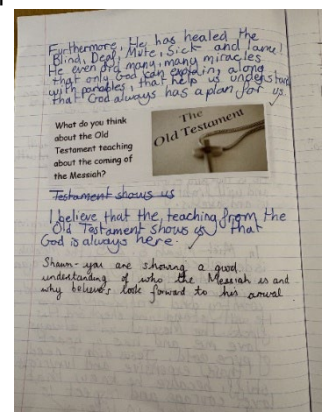 Furthermore, He has healed the
Blind, Deaf, Mute, Sick and lame!
He even did many, many miracles
that only God can explain, along
with parables, that help us understand
that God always has a plan for us.
What do you think
about the Old
Testament teaching
about the coming of
the Messiah?
The
Old Testament
Testament shows us
I believe that the teaching from the
Old Testament shows us that
God is always here.
Shaun - you are showing a good
understanding of who the Messiah is and
why believers look forward to his arrival.